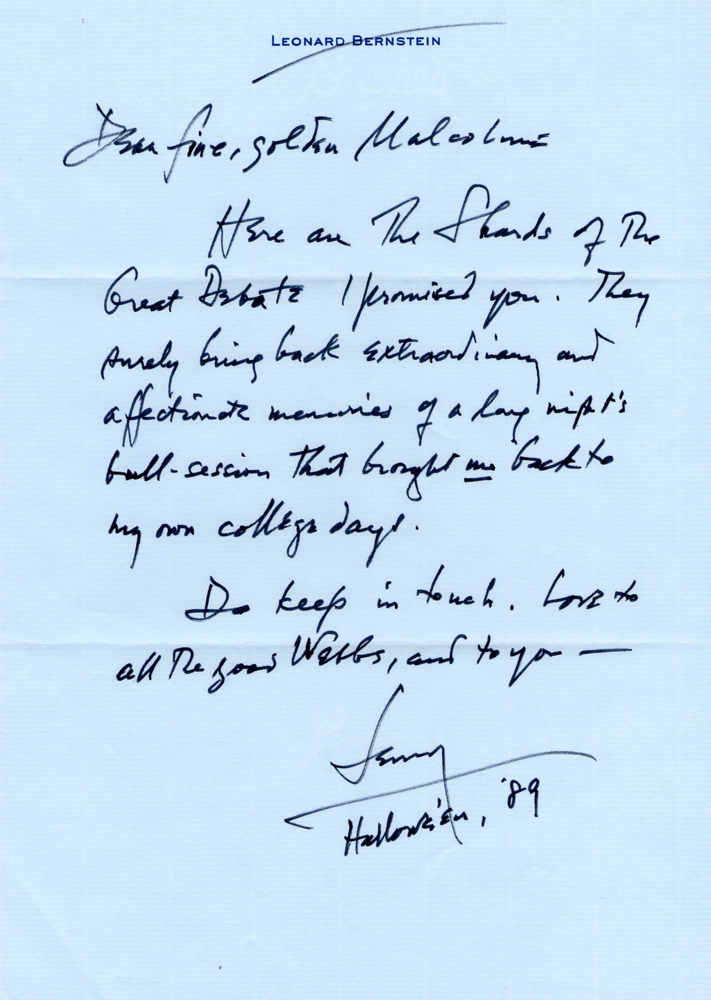 LEONARD BERNSTEIN
Dear fine, golden Malcolm =
Here are The Shards of The
Great Debate I promised you. They
surely bring back extraordinary and
affectionate memories of a long night's
bull-session that brought me back to
my own college days.
Do keep in touch. Love to
all The good Webbs, and to you —
Lenny
Halloween, '89